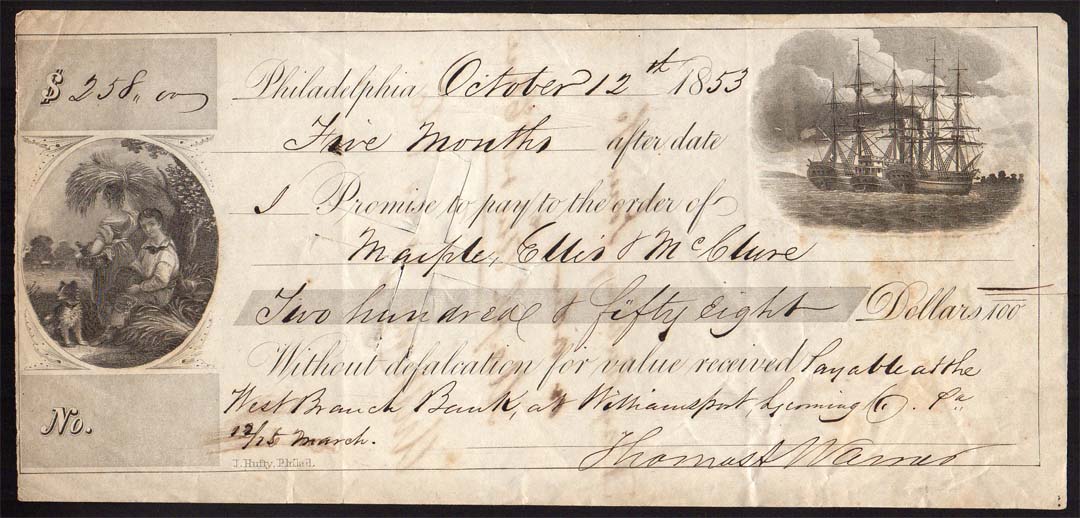 $ 258,, 00
Philadelphia October 12th 1853
Five Months after date
I Promise to pay to the order of
Maiple, Ellis & McClure
Two hundred & fifty eight Dollars 100
Without defalcation for value received Payable at the
West Branch Bank, at Williamsport, Lycoming Co. Pa
12/15 March.
No.
J. Hufty, Philad.
Thomas Warner